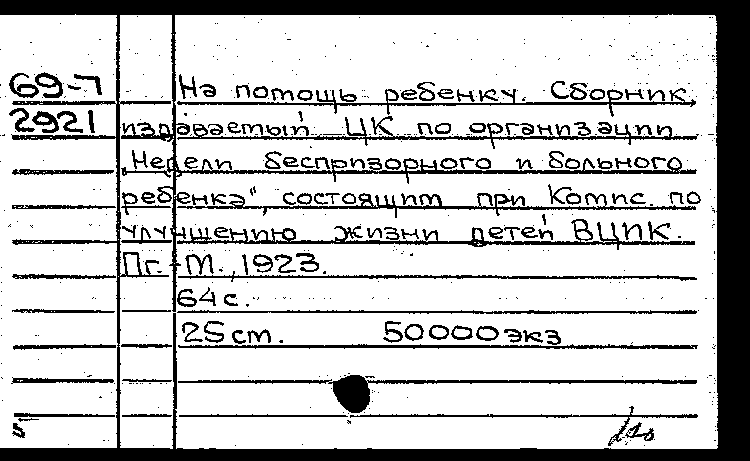 69-7 На помощь ребенку. Сборник,
2921 издаваемый ЦК по организации
„Недели беспризорного и больного
ребенка", состоящим при Комис. по
улучшению жизни детей ВЦИК.
Пг.-М., 1923.
64 с.
25 см. 50000 экз